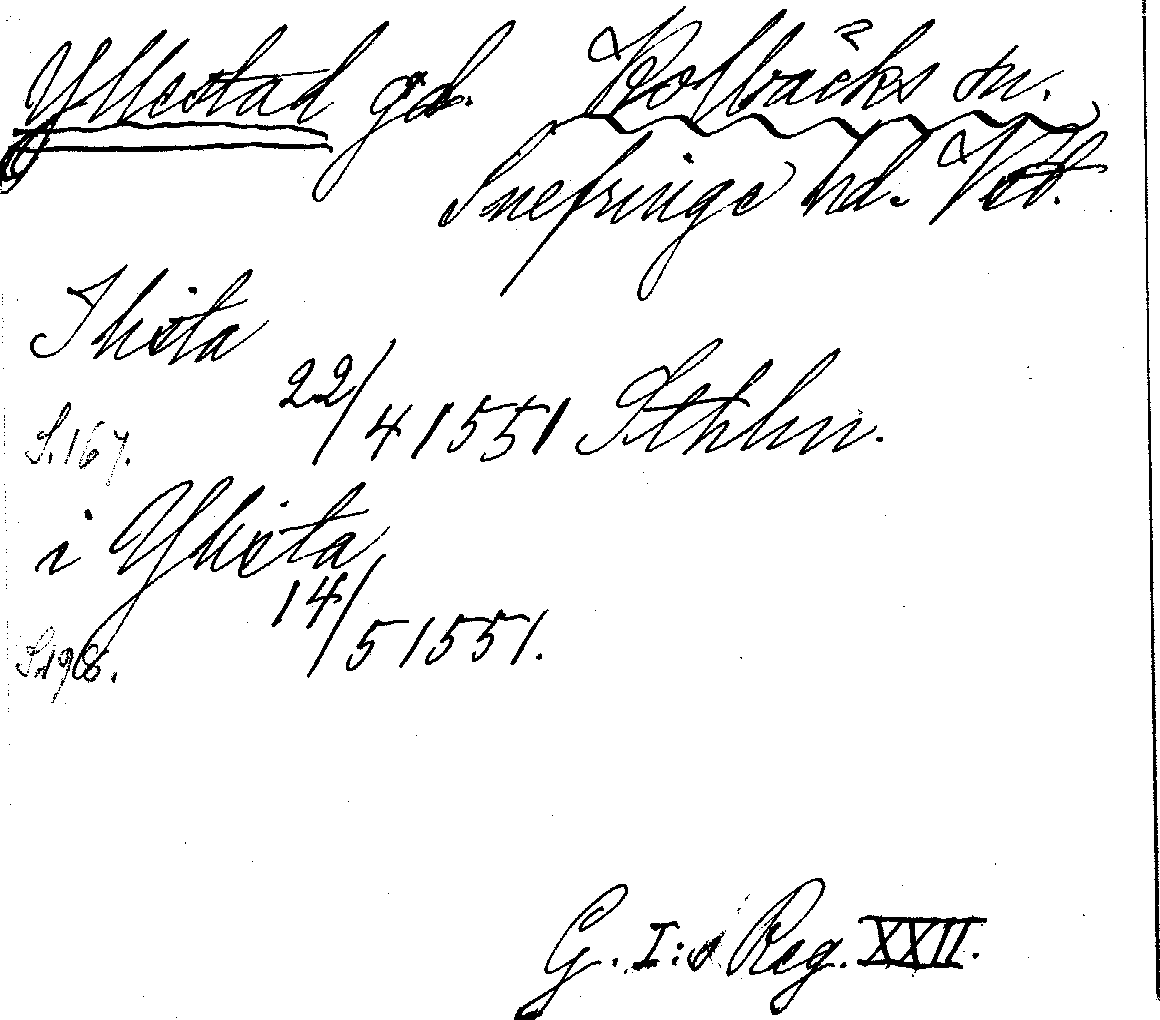 Yllestad gd. Kolbäcks sn.
Snefringe hd. Vstl.
Ihista
22/4 1551 Sthlm.
S. 167.
i Yhista
14/5 1551.
S. 198.
G. I:s Reg. XXII.